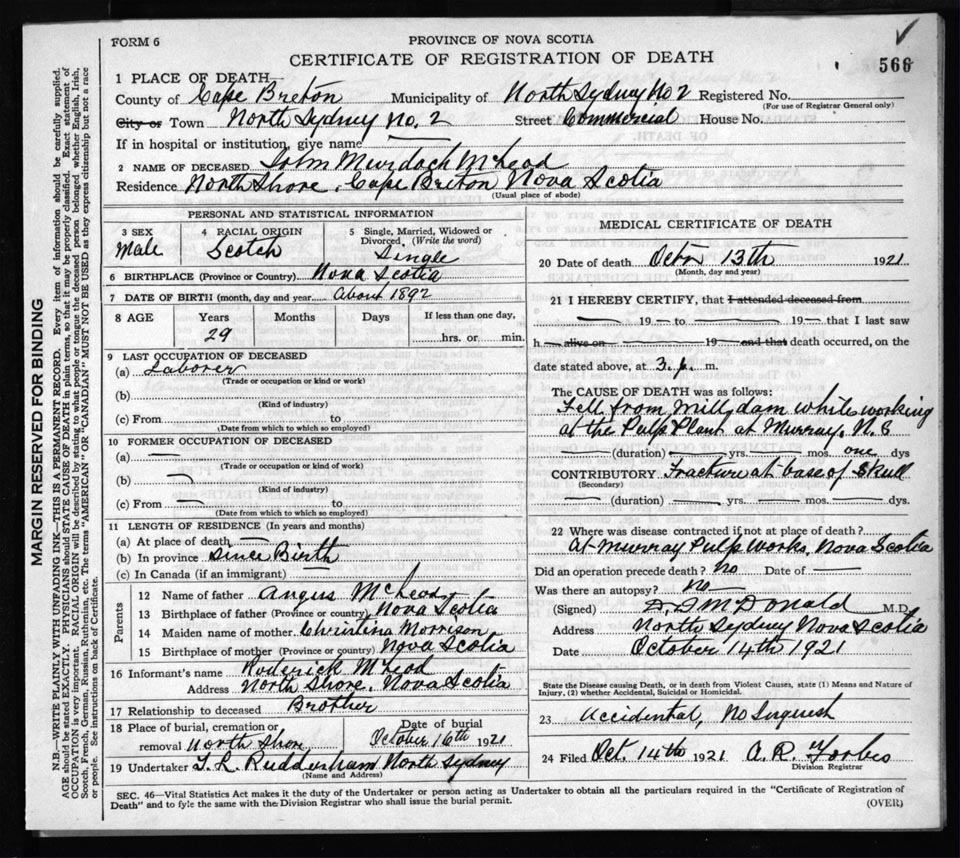 FORM 6
PROVINCE OF NOVA SCOTIA
CERTIFICATE OF REGISTRATION OF DEATH
566
1 PLACE OF DEATH
County of Cape Breton Municipality of North Sydney No 2 Registered No.
(For use of Registrar General only)
City or Town North Sydney No. 2 Street Commercial House No.
If in hospital or institution, give name
2 NAME OF DECEASED John Murdoch McLeod
Residence North Shore, Cape Breton Nova Scotia
(Usual place of abode)
PERSONAL AND STATISTICAL INFORMATION
3 SEX
Male
4 RACIAL ORIGIN
Scotch
5 Single, Married, Widowed or Divorced. (Write the word)
Single
6 BIRTHPLACE (Province or Country) Nova Scotia
7 DATE OF BIRTH (month, day and year) About 1892
8 AGE Years Months Days If less than one day,
29 hrs. or min.
9 LAST OCCUPATION OF DECEASED
(a) Laborer
(Trade or occupation or kind or work)
(b)
(Kind of industry)
(c) From to
(Date from which to which so employed)
10 FORMER OCCUPATION OF DECEASED
(a) —
(Trade or occupation or kind of work)
(b) —
(Kind of industry)
(c) From — to
(Date from which to which so employed)
11 LENGTH OF RESIDENCE (In years and months)
(a) At place of death —
(b) In province Since Birth
(c) In Canada (if an immigrant) —
Parents
12 Name of father Angus McLeod
13 Birthplace of father (Province or country) Nova Scotia
14 Maiden name of mother Christina Morrison
15 Birthplace of mother (Province or country) Nova Scotia
16 Informant's name Roderick McLeod
Address North Shore, Nova Scotia
17 Relationship to deceased Brother
18 Place of burial, cremation or Date of burial
removal North Shore October 16th 1921
19 Undertaker North Sydney
(Name and Address)
MEDICAL CERTIFICATE OF DEATH
20 Date of death Octbr 13th 1921
(Month, day and year)
21 I HEREBY CERTIFY, that I attended deceased from
— 19 — to — 19 — that I last saw
h — alive on — 19 — and that death occurred, on the
date stated above, at 3. p. m.
The CAUSE OF DEATH was as follows:
Fell from Mill dam while working
at the Pulp Plant at Murray, N. S
— (duration) — yrs. — mos. one dys
CONTRIBUTORY Fracture at base of Skull
(Secondary)
— (duration) — yrs. — mos. — dys.
22 Where was disease contracted if not at place of death?
At Murray Pulp Works, Nova Scotia
Did an operation precede death? No Date of —
Was there an autopsy? No
(Signed) McDonald M.D.
Address North Sydney Nova Scotia
Date October 14th 1921
State the Disease causing Death, or in death from Violent Causes, state (1) Means and Nature of
Injury, (2) whether Accidental, Suicidal or Homicidal.
23 Accidental, No Inquest
24 Filed Oct. 14th 1921 A. R. Forbes
Division Registrar
SEC. 46—Vital Statistics Act makes it the duty of the Undertaker or person acting as Undertaker to obtain all the particulars required in the "Certificate of Registration of
Death" and to fyle the same with the Division Registrar who shall issue the burial permit.
(OVER)
MARGIN RESERVED FOR BINDING
N.B.—WRITE PLAINLY WITH UNFADING INK—THIS IS A PERMANENT RECORD. Every item of information should be carefully supplied.
AGE should be stated EXACTLY. PHYSICIANS should STATE CAUSE OF DEATH in plain terms, so that it may be properly classified. Exact statement of
OCCUPATION is very important. RACIAL ORIGIN will be described by stating to what people or tongue the deceased person belonged, whether English, Irish,
Scotch, French, German, Russian, Ruthenian, etc. The terms "AMERICAN" OR "CANADIAN" MUST NOT BE USED as they express citizenship but not a race
or people. See instructions on back of Certificate.